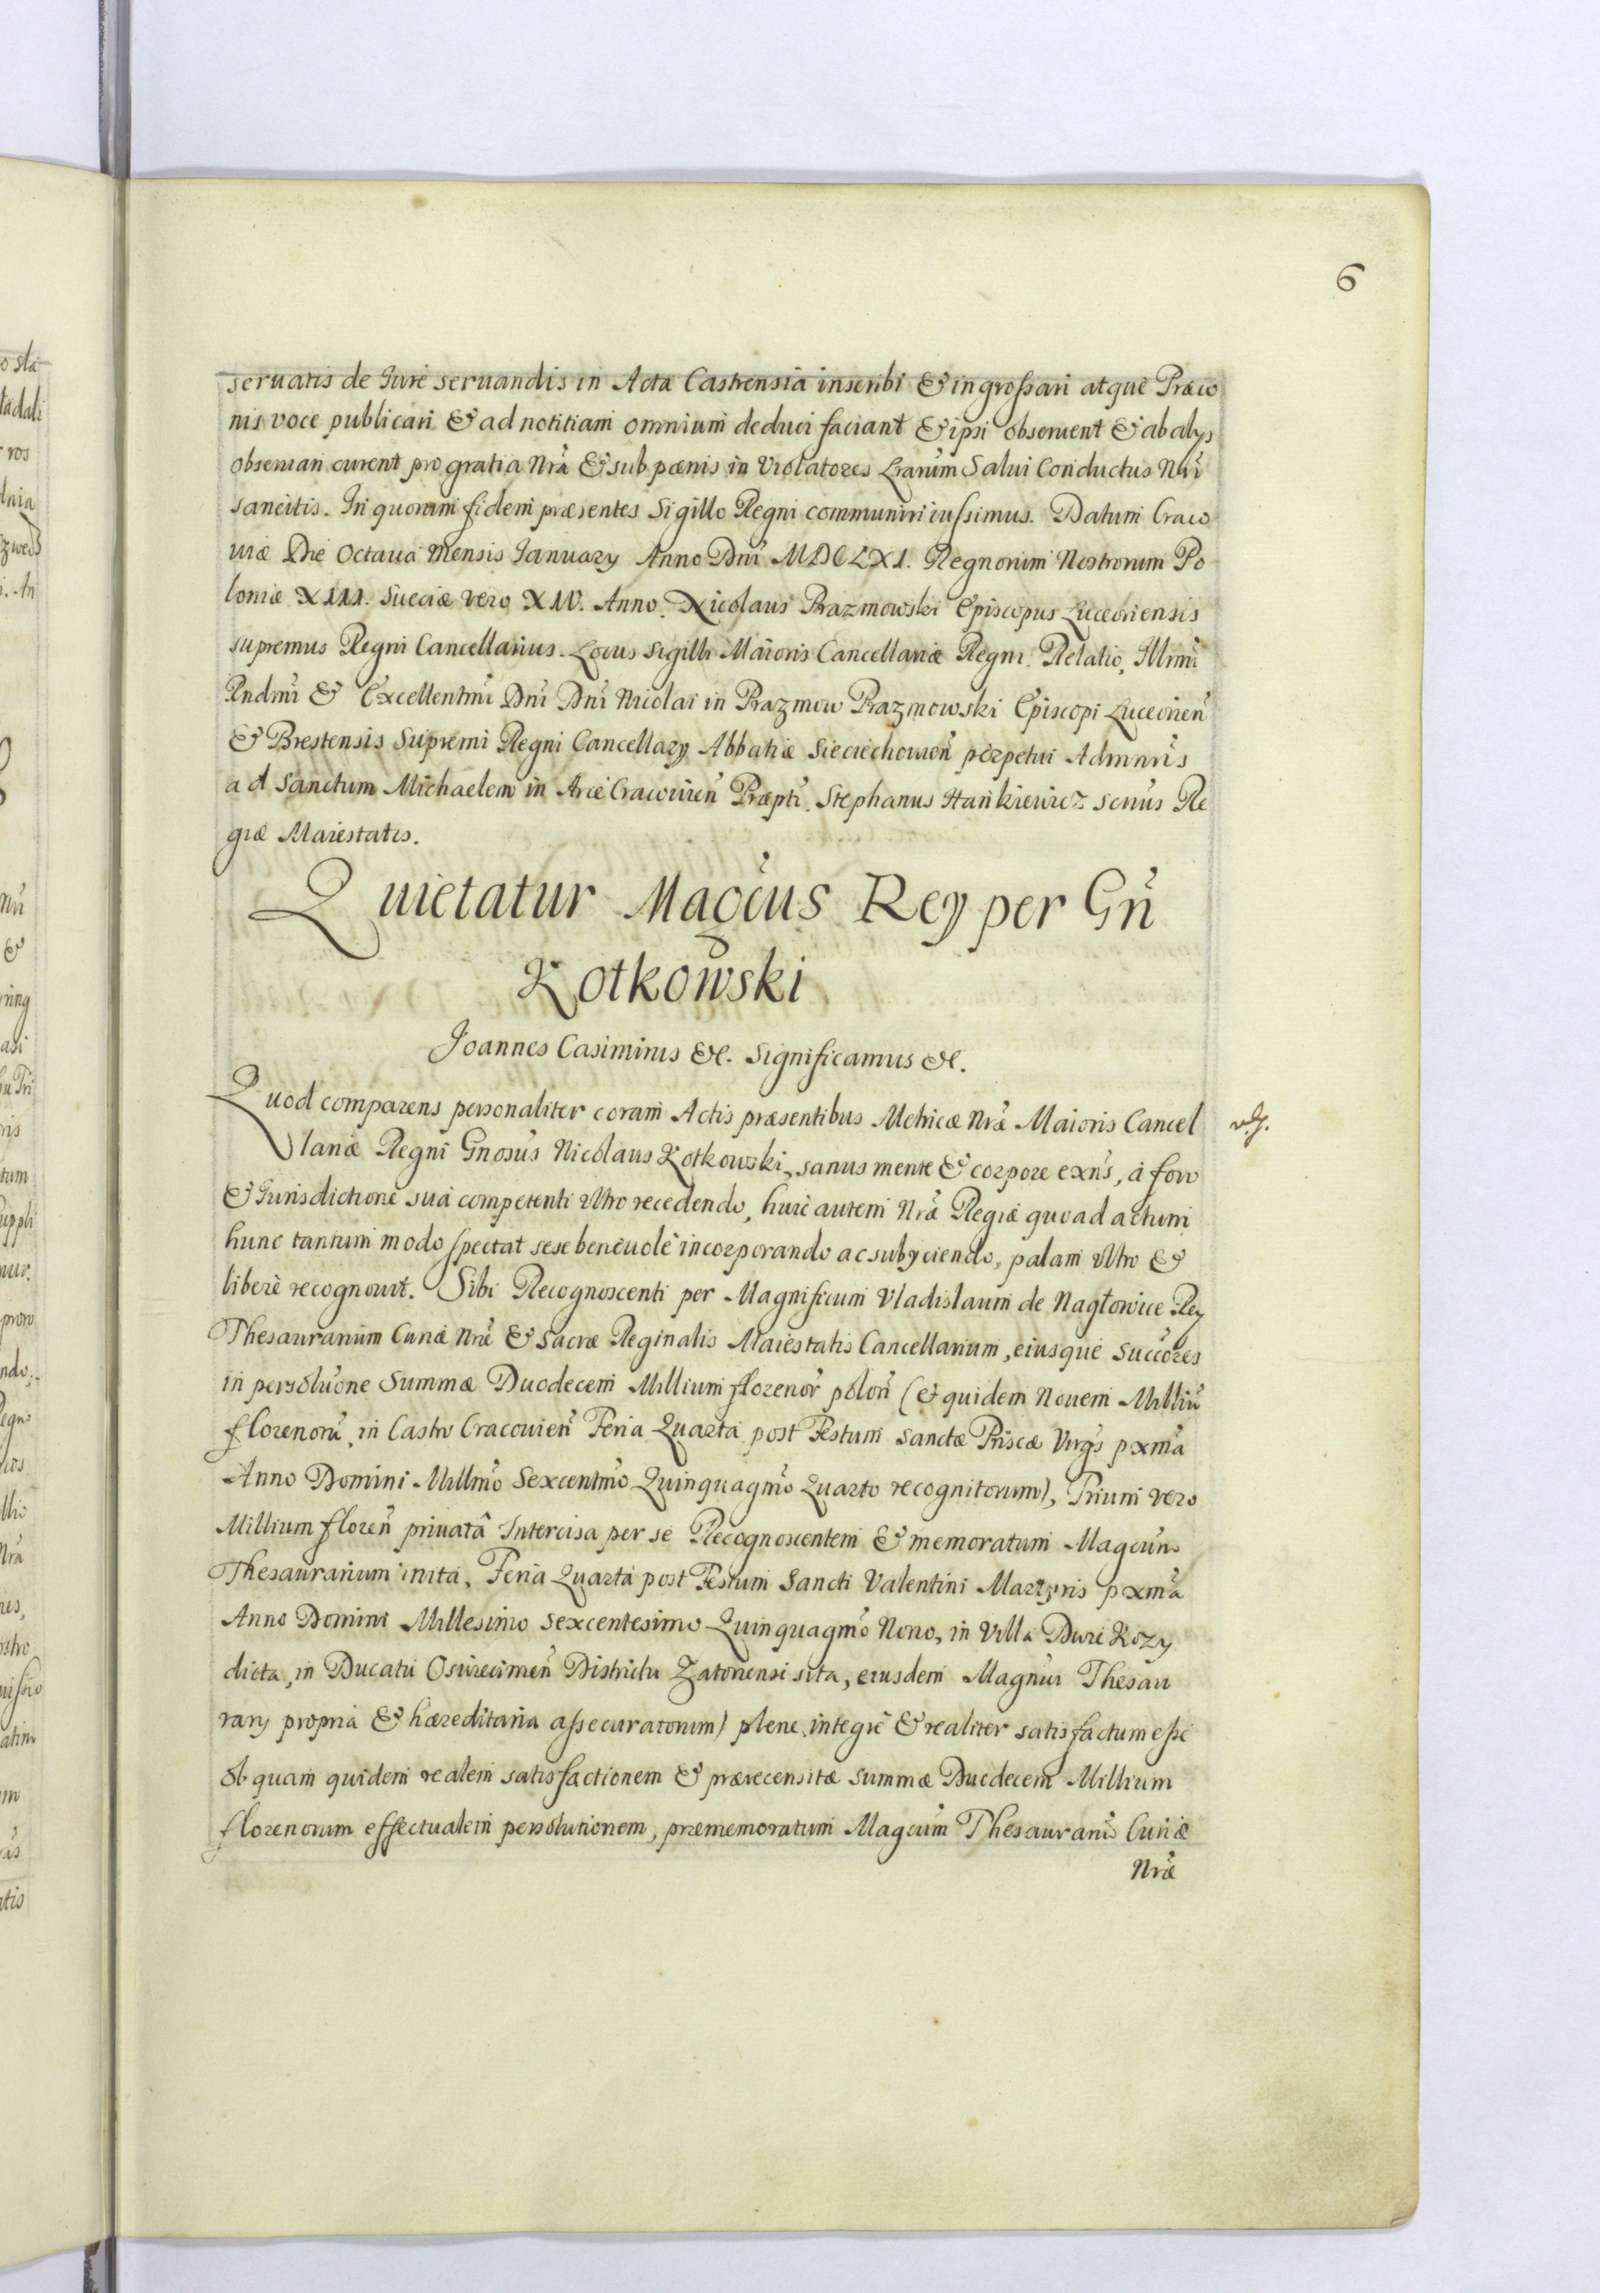 6
seruatis de Iure seruandis in Acta Castrensia inscribi & ingrossari atque Præco
nis voce publicari & ad notitiam omnium deduci faciant & ipsi obseruent & ab alys
obseruari curent pro gratia Nrã & sub pœnis in Violatores Lrarum Salui Conductus Nri
sancitis. In quorum fidem præsentes Sigillo Regni communiri iussimus. Datum Craco
uiæ Die Octaua Mensis Ianuary Anno Dni MDCLXI. Regnorum Nostrorum Po
loniæ XIII. Sueciæ vero XIV. Anno. Nicolaus Prazmowski Episcopus Luceoriensis
supremus Regni Cancellarius. Locus Sigilli Maioris Cancellariæ Regni. Relatio, Illmi
Rndmi & Excellentmi Dni Dni Nicolai in Prazmow Prazmowski Episcopi Luceorien
& Brestensis Supremi Regni Cancellary Abbatiæ Sieciechouien perpetui Admnris
ad Sanctum Michaelem in Arce Cracouien Præpti. Stephanus Hankiewicz Scrius Re
giæ Maiestatis.
Quietatur Magcus Rey per Gn
Kotkowski
Joannes Casimirus &c. Significamus &c.
Quod comparens personaliter coram Actis præsentibus Metricæ Nræ Maioris Cancel
lariæ Regni Gnosus Nicolaus Kotkowski, sanus mente & corpore exns, à foro
& Iurisdictione suâ competenti vltro recedendo, huic autem Nræ Regiæ quoad actum
hunc tantum modo spectat sese beneuolè incorporando ac subyciendo, palam vltro &
liberè recognouit. Sibi Recognoscenti per Magnificum Vladislaum de Nagłowice Rey
Thesaurarium Curiæ Nræ & Sacræ Reginalis Maiestatis Cancellarium, eiusque Succores
in persolutione Summæ Duodecem Millium florenor polon (et quidem Nouem Milliu
florenoru, in Castro Cracouien Feria Quarta post Festum Sanctæ Priscæ Virgs pxma
Anno Domini Millmo Sexcentmo Quinquagmo Quarto recognitorum), Trium vero
Millium floren priuatâ Intercisa per se Recognoscentem & memoratum Magcum
Thesaurarium inita, Feria Quarta post Festum Sancti Valentini Martyris pxma
Anno Domini Millesimo Sexcentesimo Quinquagmo Nono, in Villa Dwie Kozy
dicta, in Ducatu Osuiecimen Districtu Zatoriensi sita, eiusdem Magnui Thesau
rary propria & hæreditaria assecuratorum) plene, integrè & realiter satisfactum esse
Ob quam quidem realem satisfactionem & præcensitæ summæ Duodecem Millium
florenorum effectualem persolutionem, præmemoratum Magcum Thesauraru Curiæ
Nræ